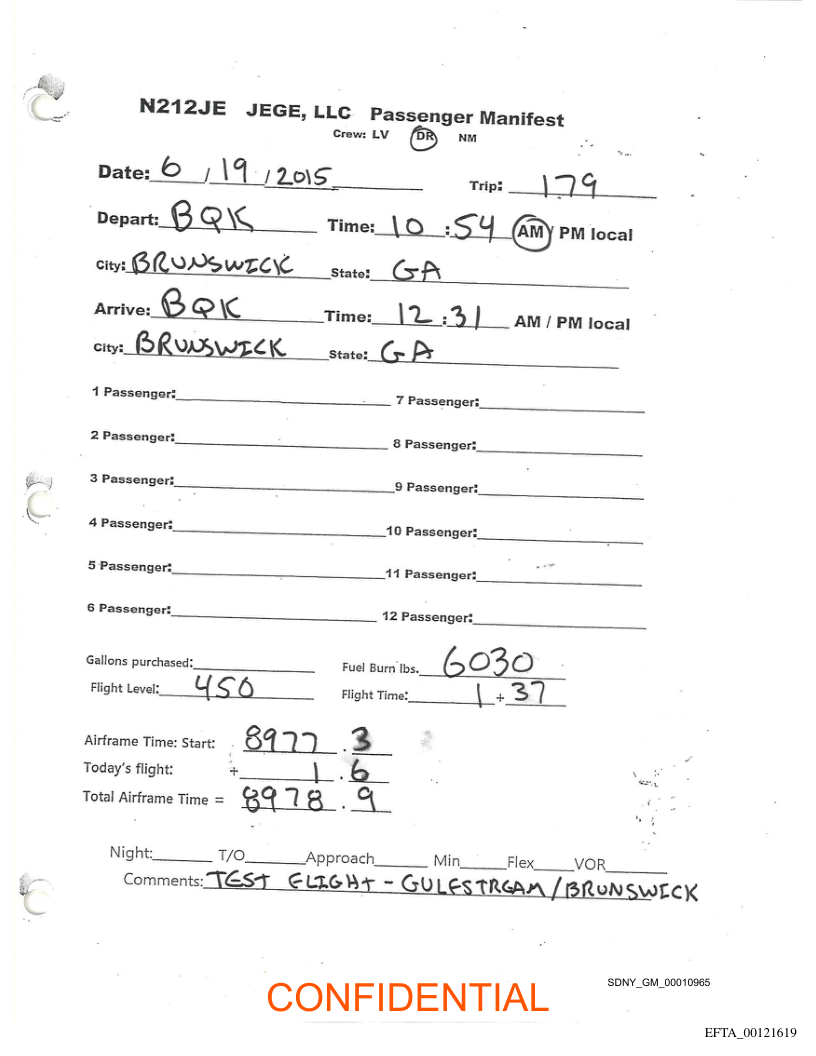 N212JE JEGE, LLC Passenger Manifest
Crew: LV DR NM
Date: 6 / 19 / 2015 Trip: 179
Depart: BQK Time: 10 : 54 AM / PM local
City: BRUNSWICK State: GA
Arrive: BQK Time: 12 : 31 AM / PM local
City: BRUNSWICK State: GA
1 Passenger: 7 Passenger:
2 Passenger: 8 Passenger:
3 Passenger: 9 Passenger:
4 Passenger: 10 Passenger:
5 Passenger: 11 Passenger:
6 Passenger: 12 Passenger:
Gallons purchased: Fuel Burn lbs. 6030
Flight Level: 450 Flight Time: 1 + 37
Airframe Time: Start: 8977 . 3
Today's flight: + 1 . 6
Total Airframe Time = 8978 . 9
Night: T/O Approach Min Flex VOR
Comments: TEST FLIGHT - GULFSTREAM/BRUNSWICK
SDNY_GM_00010965
CONFIDENTIAL
EFTA_00121619